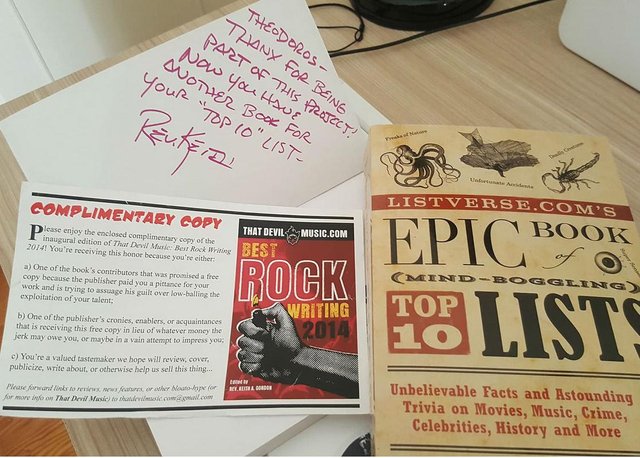 THEODOROS-
THANX FOR BEING
PART OF THIS PROJECT!
NOW YOU HAVE
ANOTHER BOOK FOR
YOUR "TOP 10" LIST-
COMPLIMENTARY COPY
Please enjoy the enclosed complimentary copy of the
inaugural edition of That Devil Music: Best Rock Writing
2014! You're receiving this honor because you're either:
a) One of the book's contributors that was promised a free
copy because the publisher paid you a pittance for your
work and is trying to assuage his guilt over low-balling the
exploitation of your talent;
b) One of the publisher's cronies, enablers, or acquaintances
that is receiving this free copy in lieu of whatever money the
jerk may owe you, or maybe in a vain attempt to impress you;
c) You're a valued tastemaker we hope will review, cover,
publicize, write about, or otherwise help us sell this thing...
Please forward links to reviews, news features, or other bloato-hype (or
for more info on That Devil Music) to thatdevilmusic.com@gmail.com
THAT DEVIL MUSIC.COM
BEST
ROCK
WRITING
2014
Edited by
REV. KEITH A. GORDON
Freaks of Nature
Unfortunate Accidents
Deadly Creatures
LISTVERSE.COM'S
EPIC BOOK
of
(MIND-BOGGLING)
TOP
10 LISTS
Unbelievable Facts and Astounding
Trivia on Movies, Music, Crime,
Celebrities, History and More